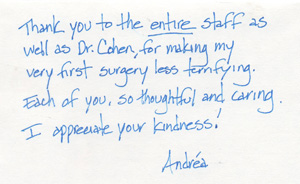 Thank you to the entire staff as
well as Dr. Cohen, for making my
very first surgery less terrifying.
Each of you, so thoughtful and caring.
I appreciate your kindness!
Andréa